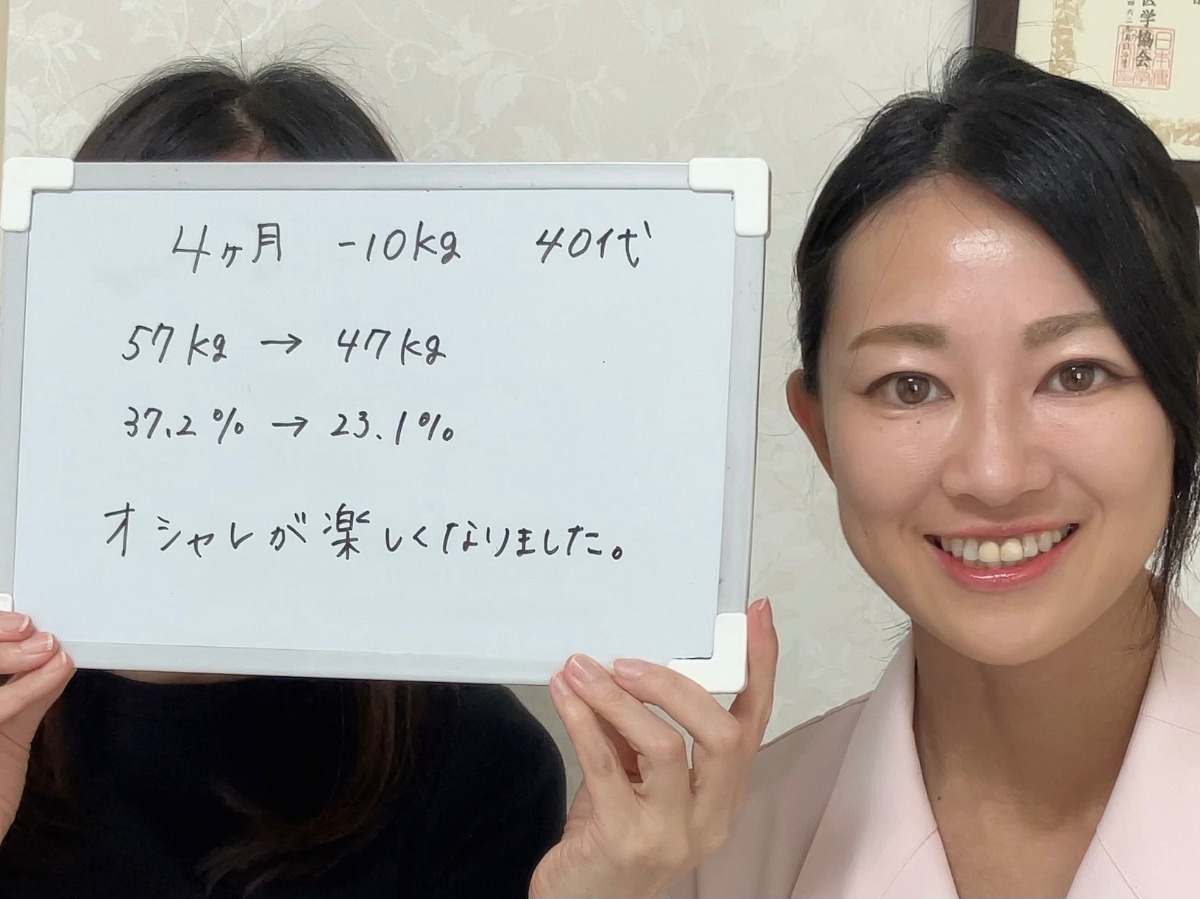 4ヶ月 -10kg 40代
57kg → 47kg
37.2% → 23.1%
オシャレが楽しくなりました。
医学協会